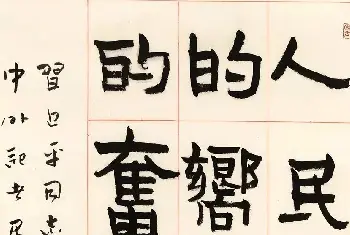 人民
的嚮
的奮
習近平同志
中外記者見